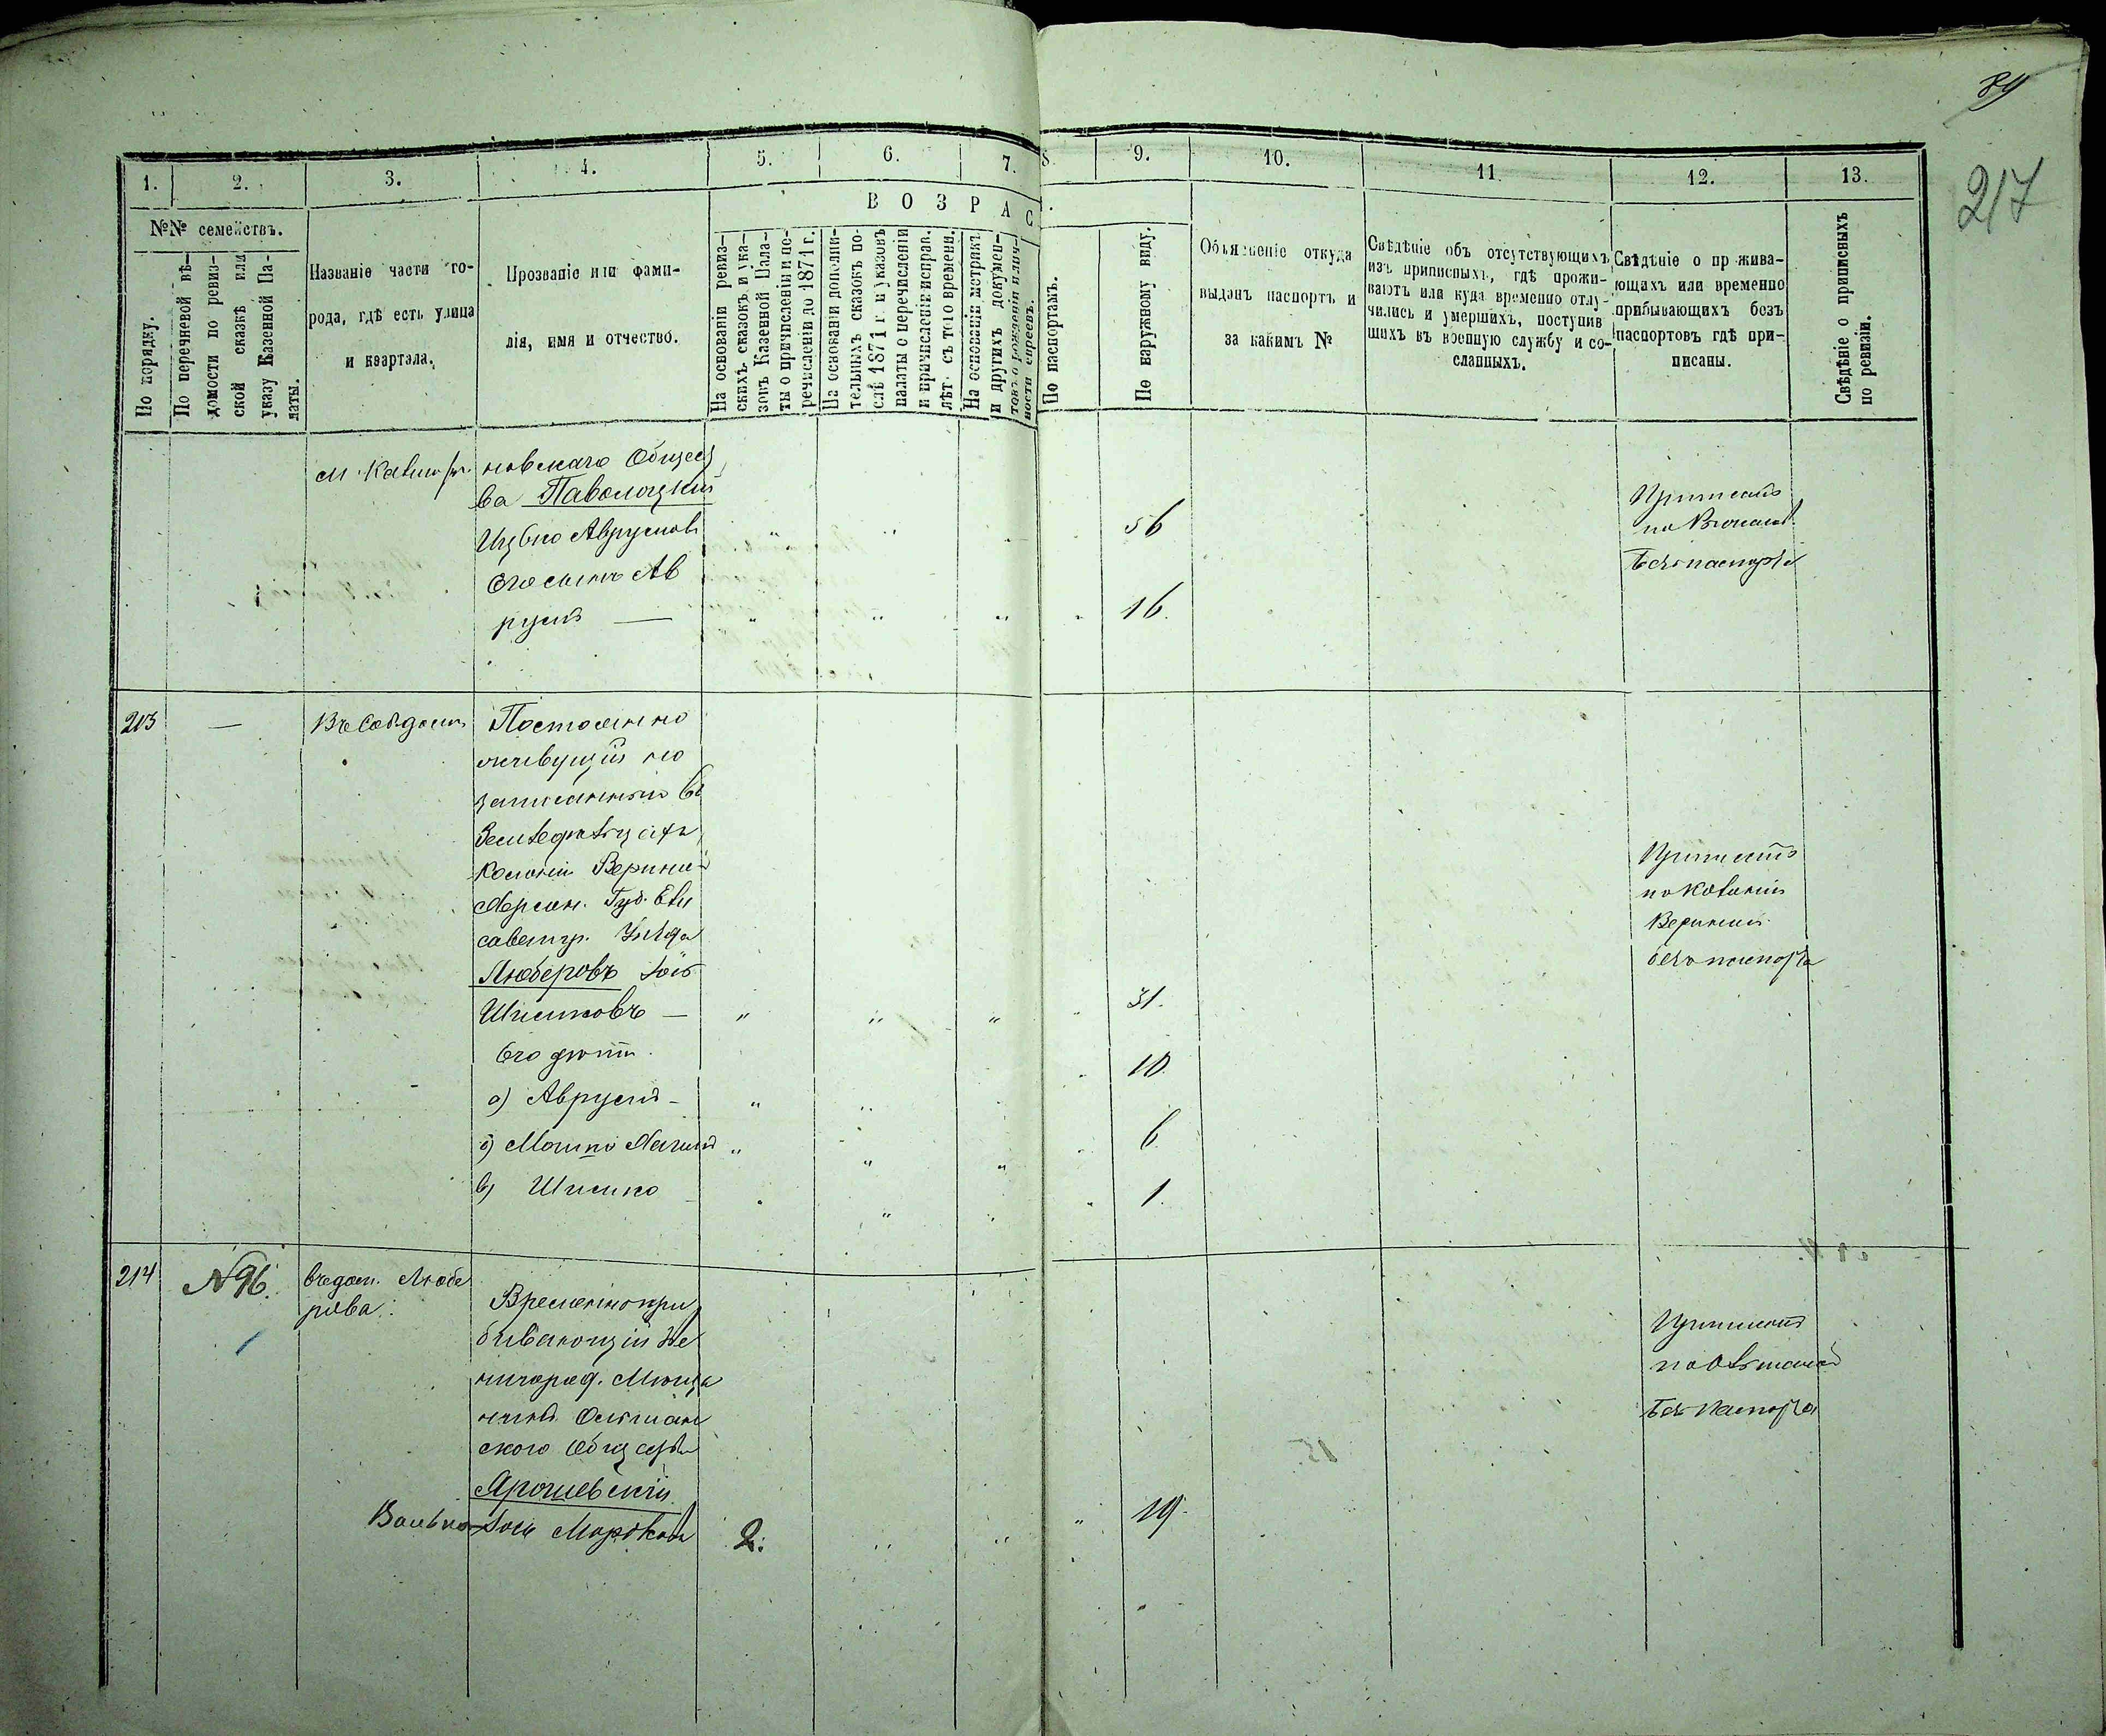 89
217
1. 2. 3. 4. 5. 6. 7. 8. 9. 10. 11. 12. 13.
№№ семействъ.
По порядку.
По перечневой вѣ-
домости по ревиз-
ской сказкѣ или
указу Казенной Па-
латы.
Названіе части го-
рода, гдѣ есть улица
и квартала.
Прозваніе или фами-
лія, имя и отчество.
ВОЗРАС
На основаніи ревиз-
скихъ сказокъ и ука-
зовъ Казенной Пала-
ты о причисленіи и пе-
речисленіи до 1871 г.
На основаніи дополни-
тельныхъ сказокъ по-
слѣ 1871 г. и указовъ
палаты о перечисленіи
и причисленіи исправ.
лѣт. съ того времени.
На основаніи метрикъ
и другихъ докумен-
товъ о рожденіи и лич-
ности евреевъ.
По паспортамъ.
По наружному виду.
Объясненіе откуда
выданъ паспортъ и
за какимъ №
Свѣдѣніе объ отсутствующихъ
изъ приписныхъ, гдѣ прожи-
ваютъ или куда временно отлу-
чились и умершихъ, поступив
шихъ въ военную службу и со-
сланныхъ.
Свѣдѣніе о прожива-
ющихъ или временно
прибывающихъ безъ
паспортовъ гдѣ при-
писаны.
Свѣдѣніе о приписныхъ
по ревизіи.
новскаго Общест
ва Паволоцкій
Ицько Аврумовъ 56
Его сынъ Ав
румъ — 16.
Приписанъ
безъ паспорта
213 —
Постоянно
живущій но
записанный въ
Земледѣльцахъ
Колоніи Вериной
Херсон. Губ. Ели
саветгр. Уѣзда
Люберовъ
Шмилковъ — 31.
Его дѣти. 10
а) Аврумъ -
б) Мошко 6
в) Шмилко 1.
Приписанъ
по Колоніи
безъ паспорта
214 №96. въ дом. Любе
рова.
Временно при
бывающій Зве
нигород. Мѣща
нинъ Ольшан
ского Общества
Ярошевскій
Волько 2. 19.
Приписанъ
по Ольшаной
безъ паспорта